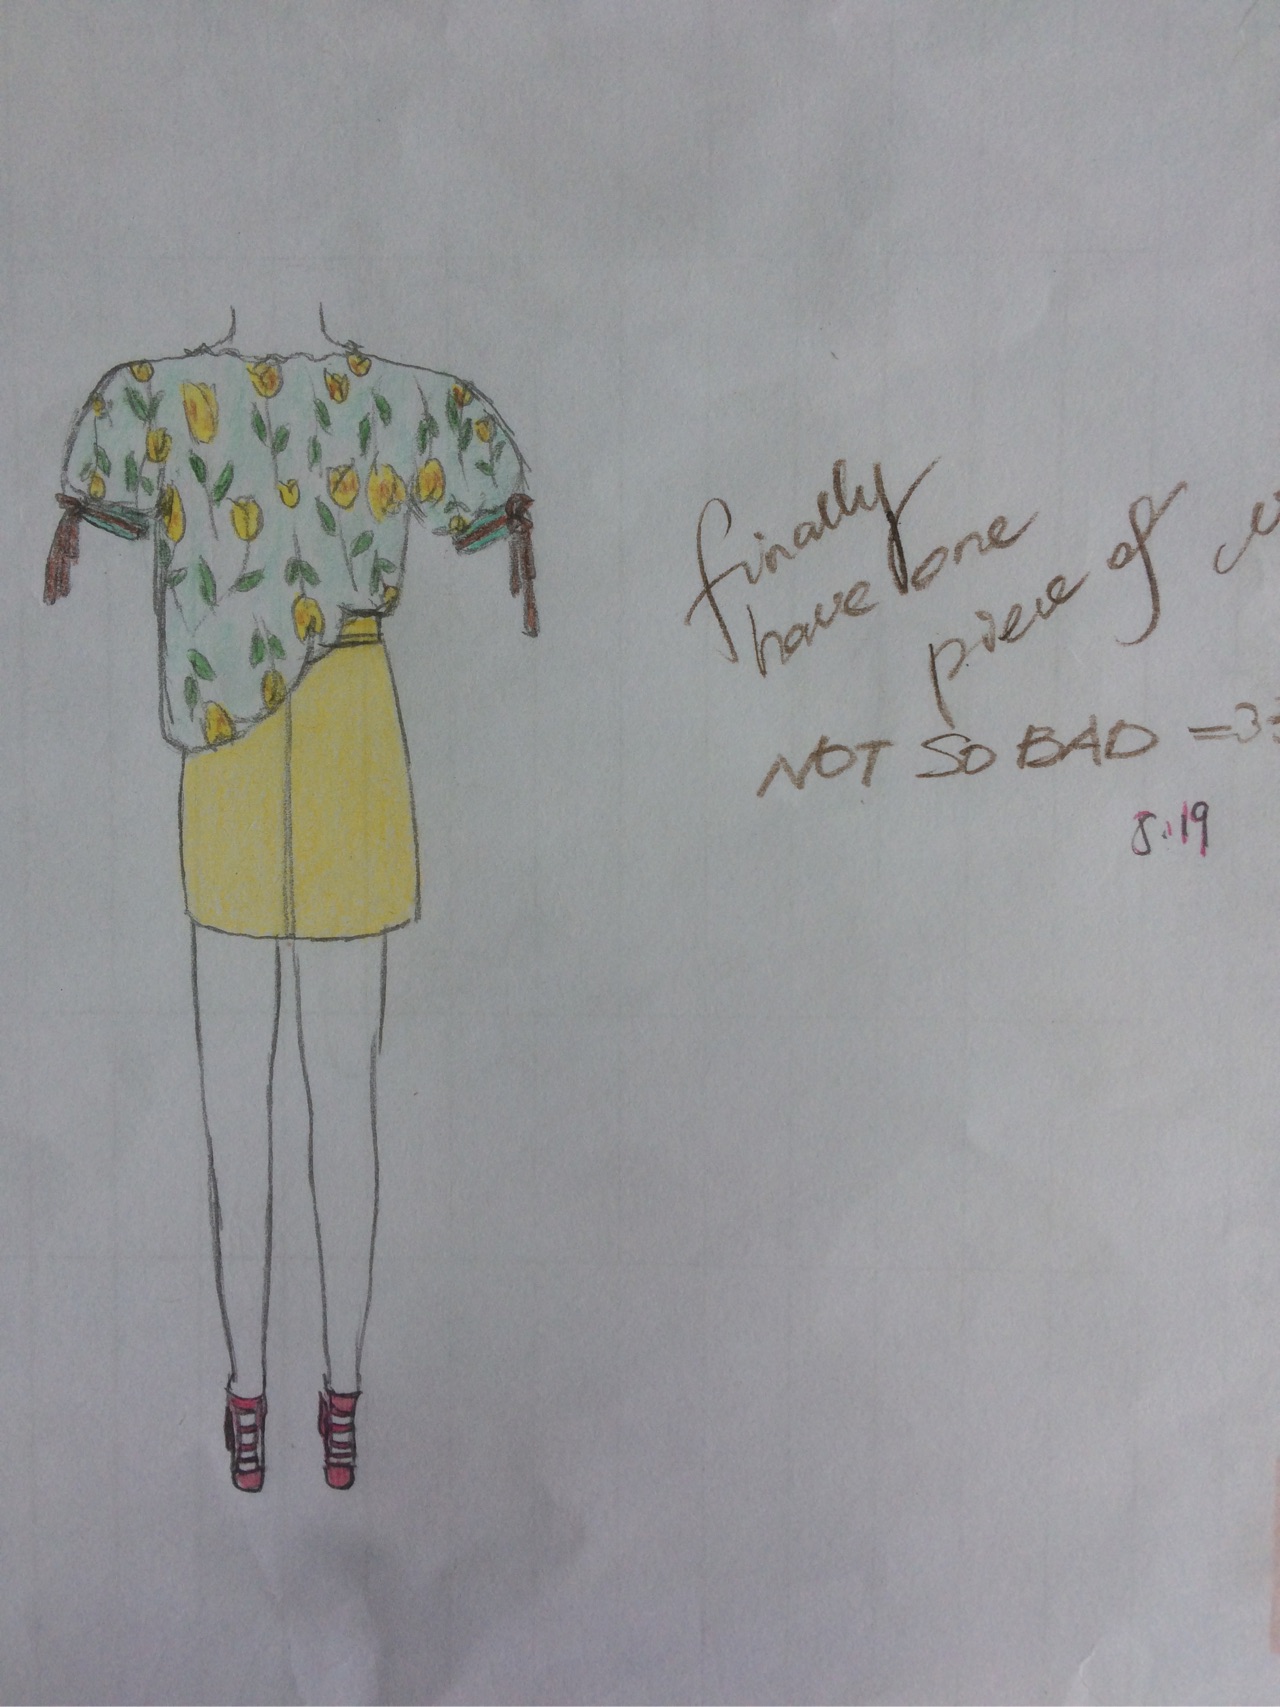 finally
have one
piece of
NOT SO BAD =3
8.19